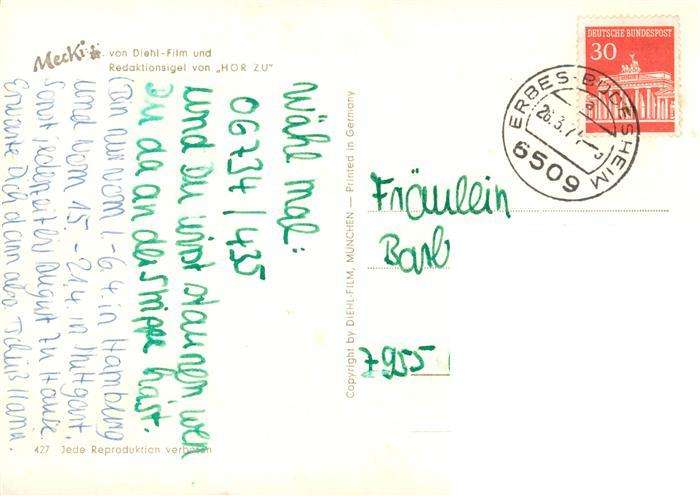 Mecki
von Diehl-Film und
Redaktionsigel von „HÖR ZU“
Wähl mal:
06734/435
und du wirst staunen wen
du da an der Strippe hast.
(Bin nur vom 1.-6.4. in Hamburg
und vom 15.-21.4. in Stuttgart,
Sonst jedenfalls August zu Hause.
Erwarte Dich dann also
427 Jede Reproduktion verboten
Copyright by DIEHL-FILM, MÜNCHEN — Printed in Germany
DEUTSCHE BUNDESPOST
30
ERBES-BÜDESHEIM
a
26.3.71
6509
Fräulein
Barb
7955